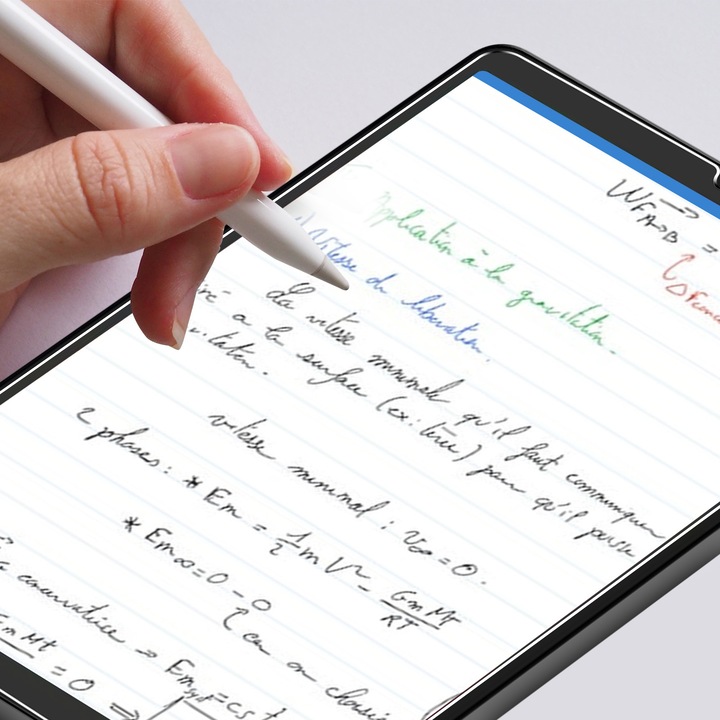 W F A→B =
Application à la gravitation.
1) Vitesse de libération.
La vitesse minimale qu'il faut communiquer
à la surface (ex: terre) pour qu'il puisse
vitesse minimal : v∞ = 0.
2 phases : * Em = 1/2 m V² - G m MT / RT
* Em∞ = 0 - 0
car on choisi
conservatrice → Em syst = cst
m Mt = 0 ⇒